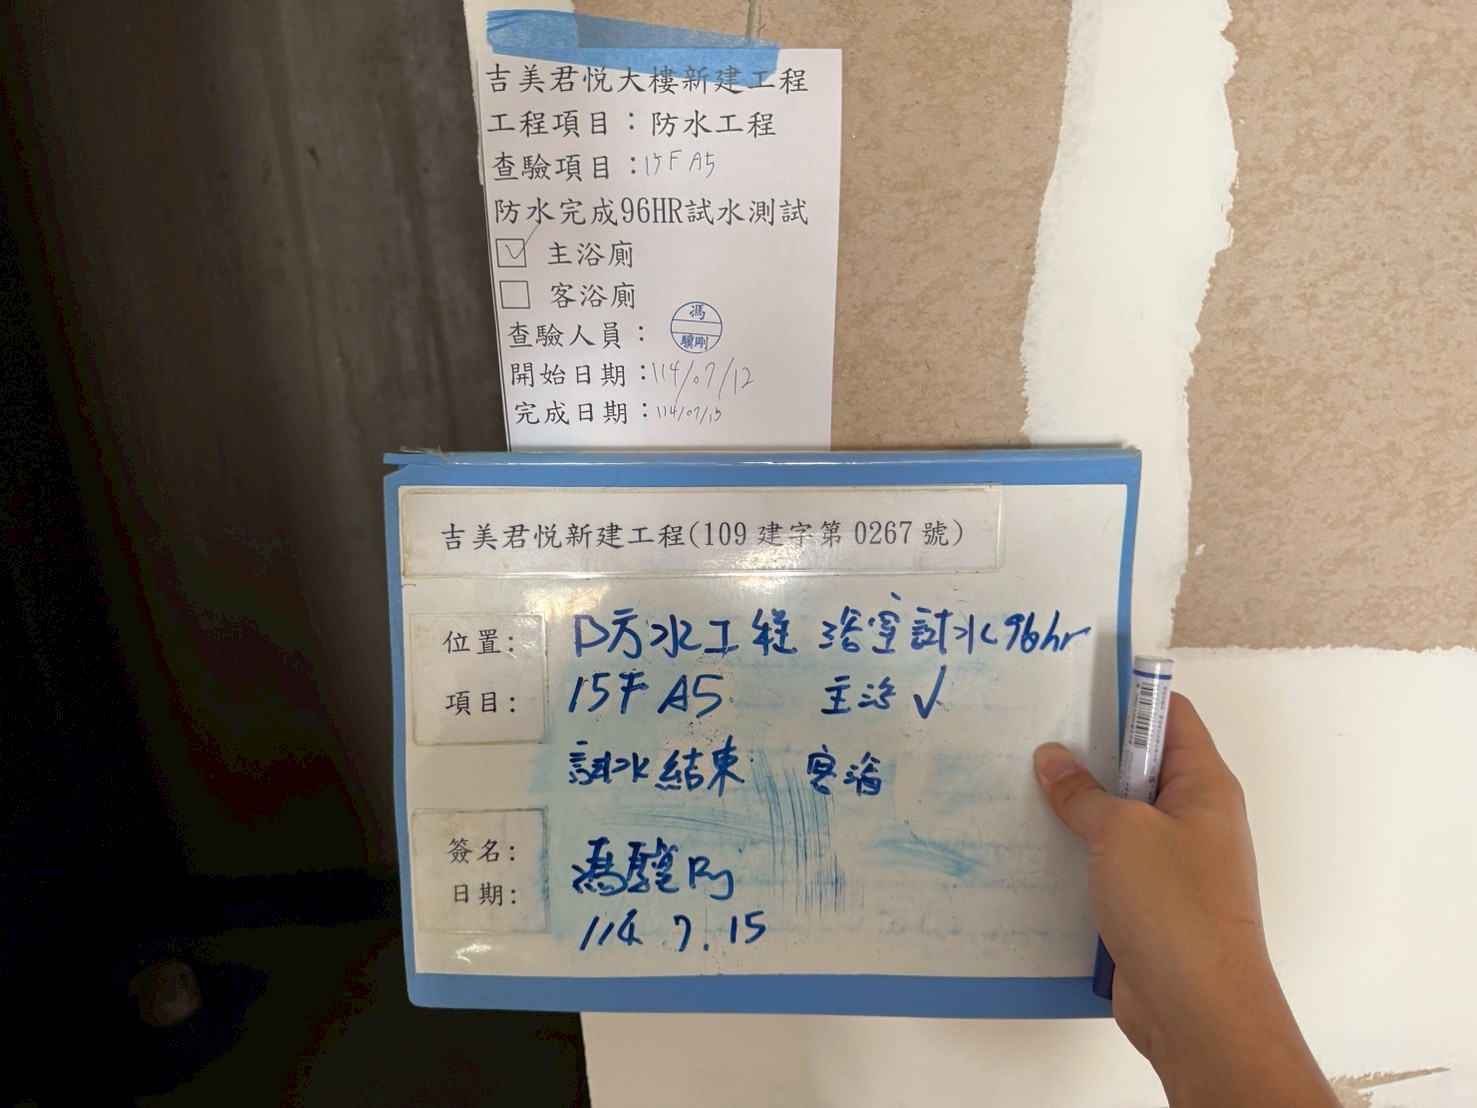 吉美君悦大樓新建工程
工程項目：防水工程
查驗項目：15F A5
防水完成96HR試水測試
主浴廁
客浴廁
查驗人員：馮 驥剛
開始日期：114/07/12
完成日期：114/07/15
吉美君悦新建工程(109建字第0267號)
位置: 防水工程 浴室試水96hr
項目: 15F A5 主浴✓
試水結束 客浴
簽名: 馮驥剛
日期: 114 7.15